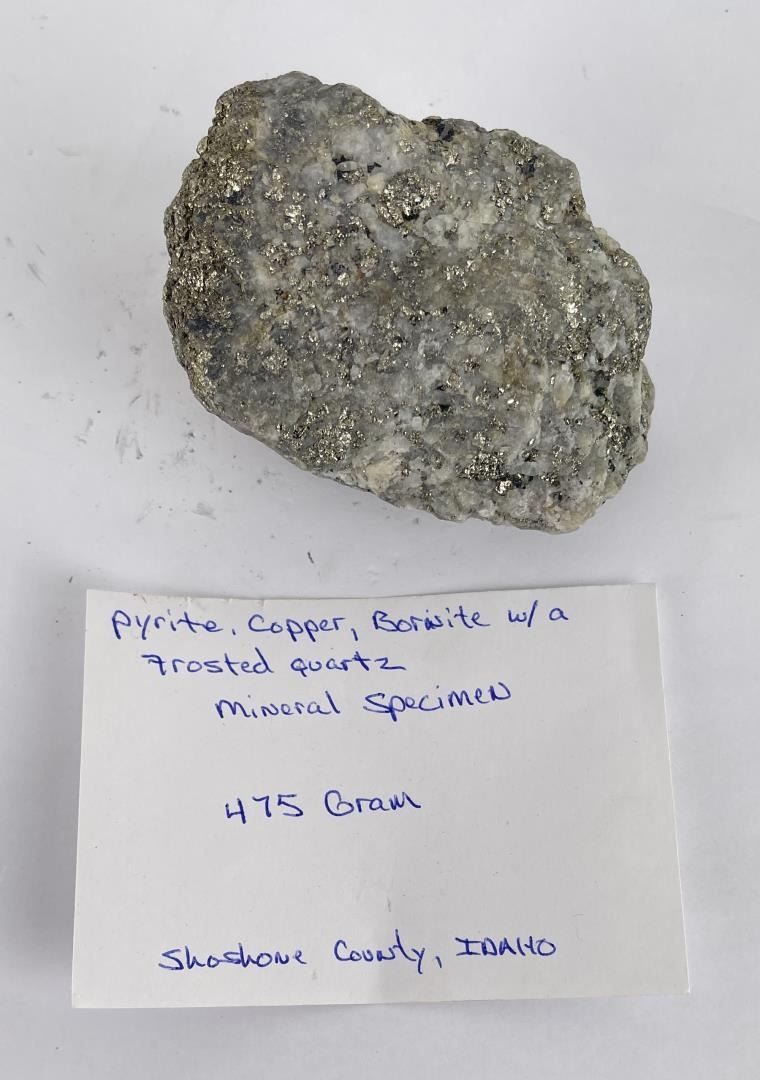 Pyrite, Copper, Bornite w/a
Frosted Quartz
Mineral Specimen
475 Gram
Shoshone County, IDAHO